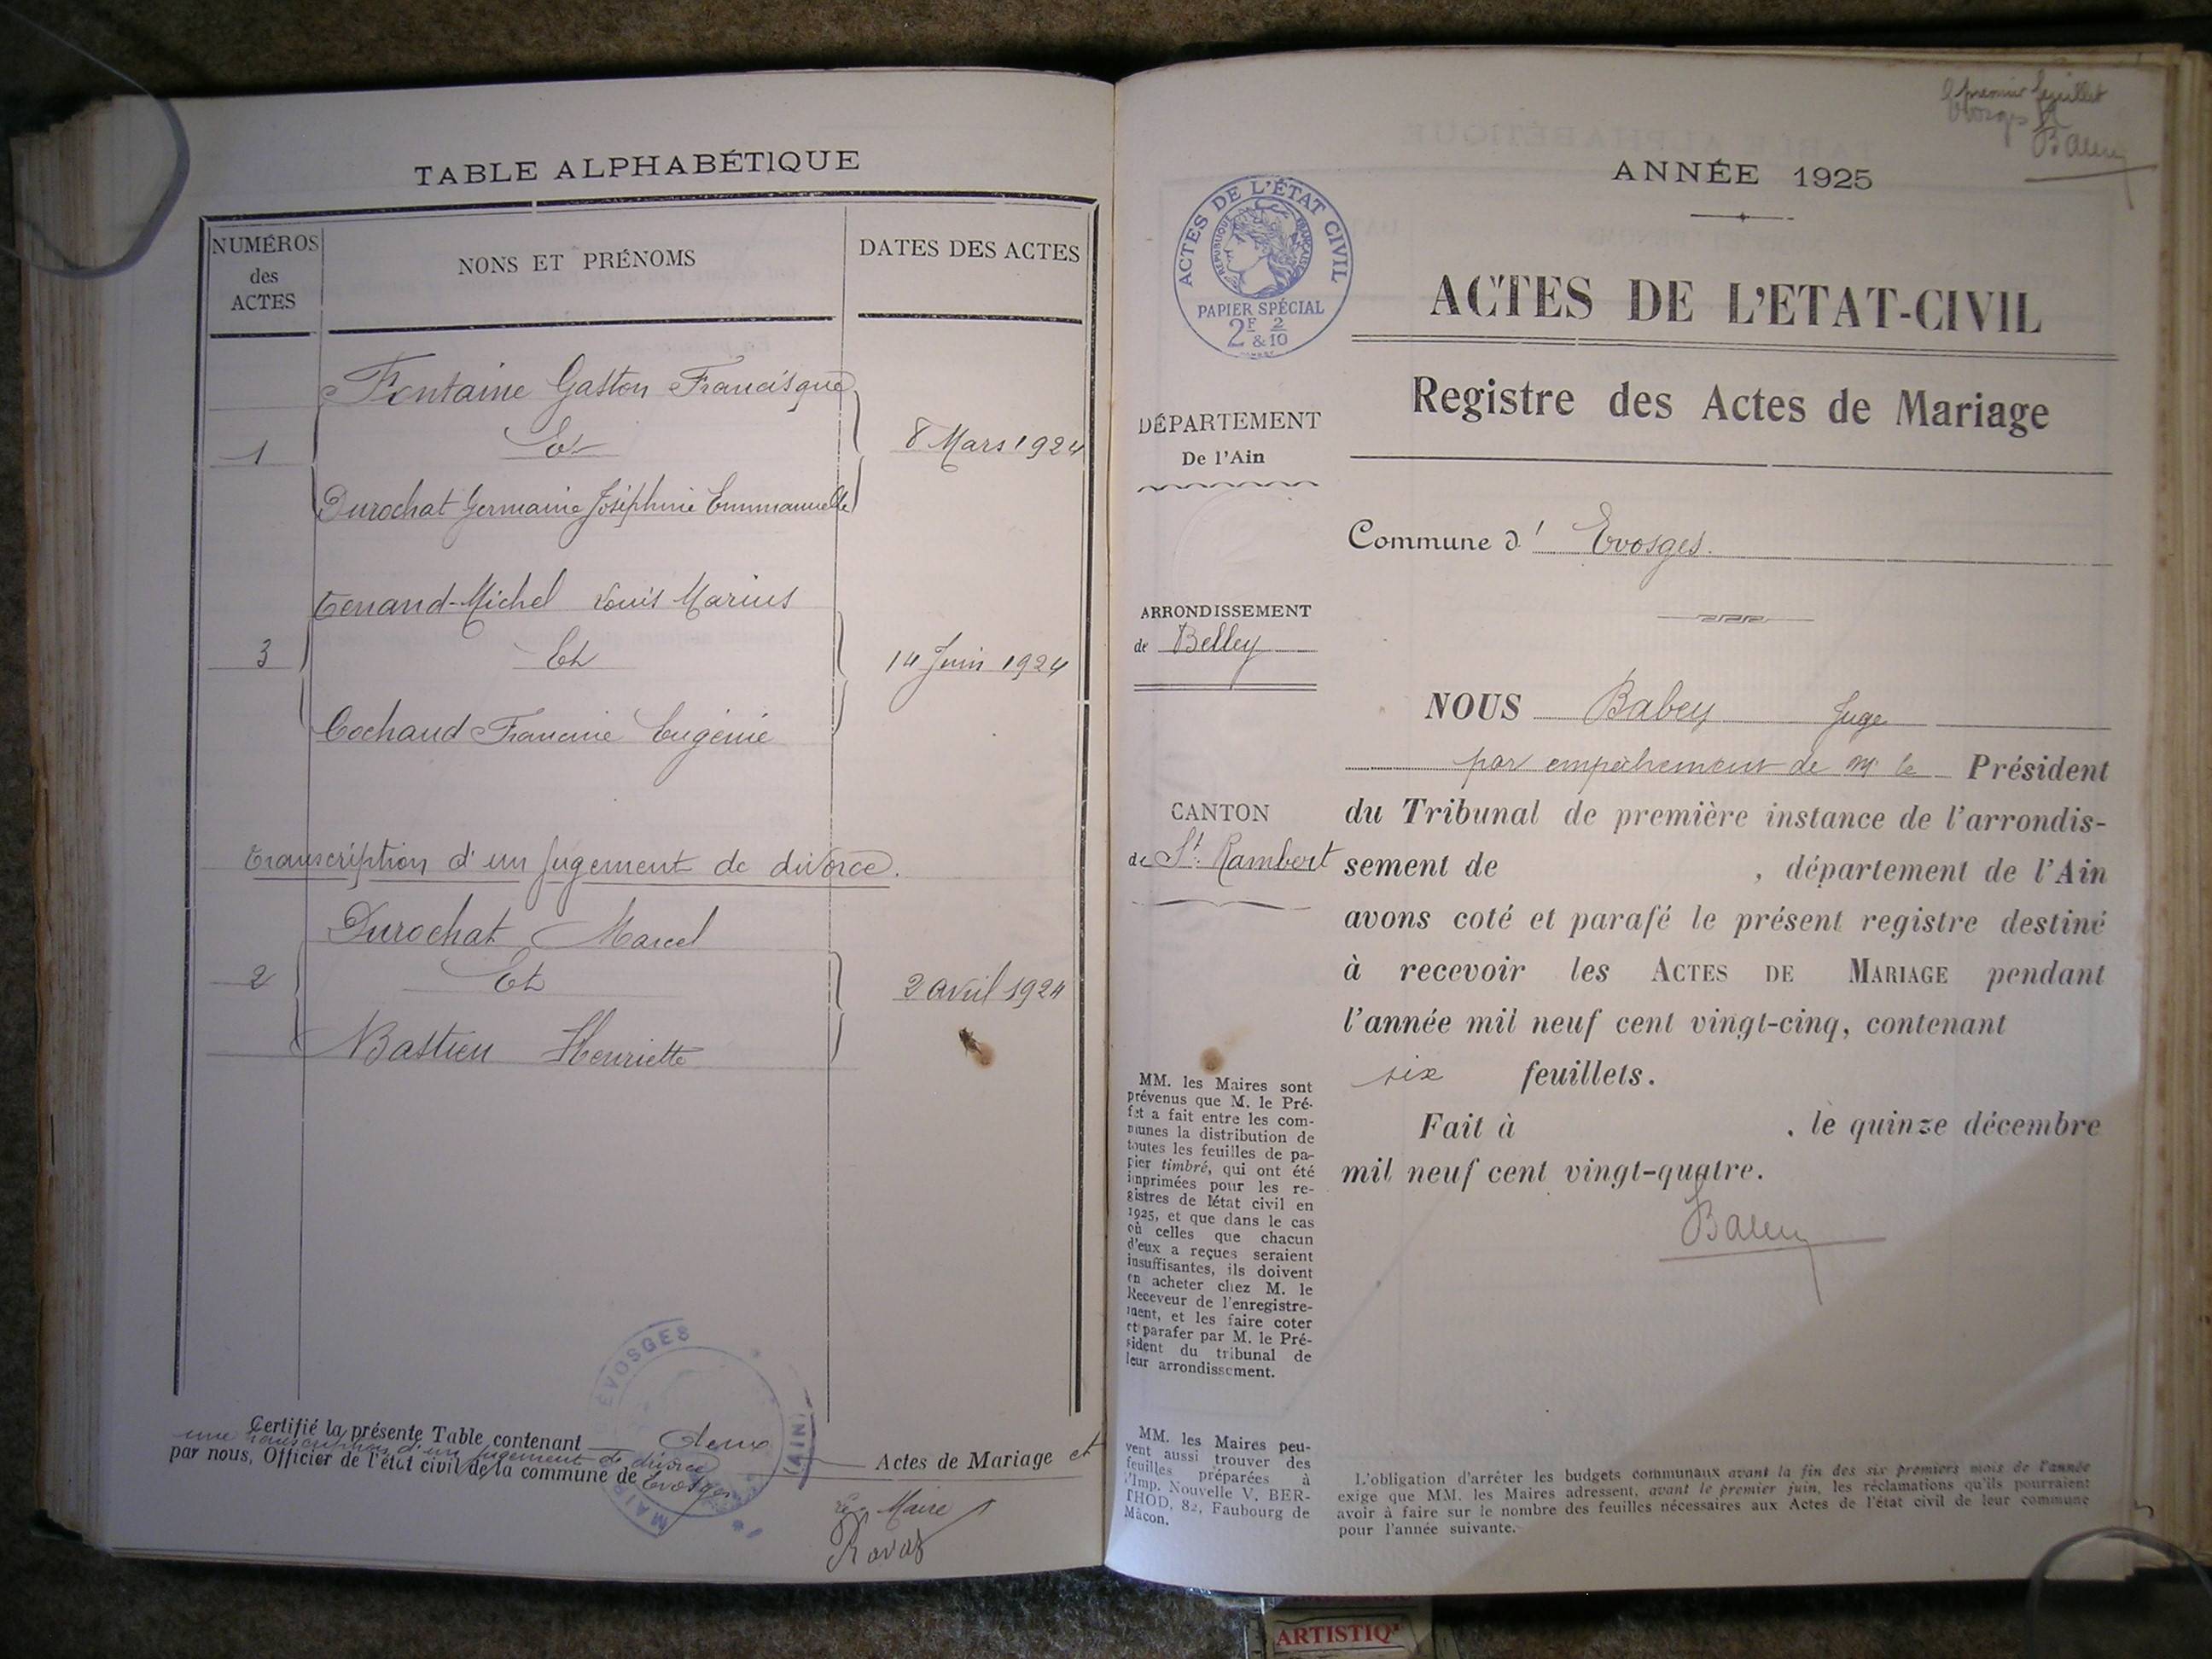 TABLE ALPHABÉTIQUE
NUMÉROS
des
ACTES
NONS ET PRÉNOMS
DATES DES ACTES
Fontaine Gaston Francisque
1 Et 8 Mars 1924
Durochat Germaine Joséphine Emmanuelle
Tenand-Michel Louis Marius
3 Et 14 Juin 1924
Cochaud Francine Eugénie
transcription d'un jugement de divorce.
Durochat Marcel
2 Et 2 avril 1924
Bastien Henriette
Certifié la présente Table contenant deux Actes de Mariage et
une transcription d'un jugement de divorce
par nous, Officier de l'état civil de la commune de Evosges
MAIRIE EVOSGES
(AIN)
Maire
ANNÉE 1925
premier feuillet
Evosges
ACTES DE L'ÉTAT CIVIL
RÉPUBLIQUE FRANÇAISE
PAPIER SPÉCIAL
2F & 2/10
ACTES DE L'ETAT-CIVIL
Registre des Actes de Mariage
DÉPARTEMENT
De l'Ain
Commune d' Evosges.
ARRONDISSEMENT
de Belley
CANTON
de St. Rambert
NOUS Babey Juge
par empêchement de Mr le Président
du Tribunal de première instance de l'arrondis-
sement de , département de l'Ain
avons coté et parafé le présent registre destiné
à recevoir les ACTES DE MARIAGE pendant
l'année mil neuf cent vingt-cinq, contenant
six feuillets.
Fait à , le quinze décembre
mil neuf cent vingt-quatre.
MM. les Maires sont
prévenus que M. le Pré-
fet a fait entre les com-
munes la distribution de
toutes les feuilles de pa-
pier timbré, qui ont été
imprimées pour les re-
gistres de l'état civil en
1925, et que dans le cas
où celles que chacun
d'eux a reçues seraient
insuffisantes, ils doivent
en acheter chez M. le
Receveur de l'enregistre-
ment, et les faire coter
et parafer par M. le Pré-
sident du tribunal de
leur arrondissement.
MM. les Maires peu-
vent aussi trouver des
feuilles préparées à
l'Imp. Nouvelle V. BER-
THOD, 82, Faubourg de
Mâcon.
L'obligation d'arrêter les budgets communaux avant la fin des six premiers mois de l'année
exige que MM. les Maires adressent, avant le premier juin, les réclamations qu'ils pourraient
avoir à faire sur le nombre des feuilles nécessaires aux Actes de l'état civil de leur commune
pour l'année suivante.
ARTISTIQ